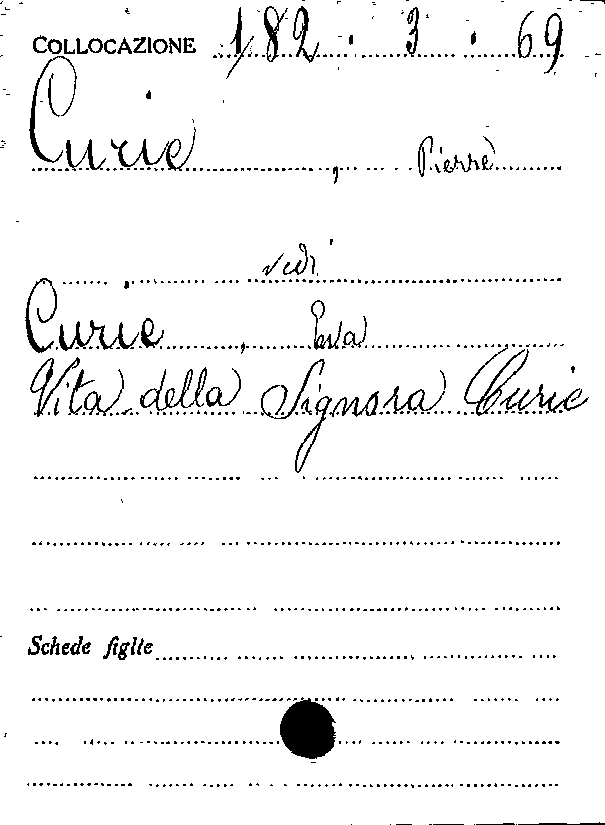 COLLOCAZIONE 182 . 3 . 69
Curie, Pierre
vedi
Curie, Eva
Vita della Signora Curie
Schede figlie